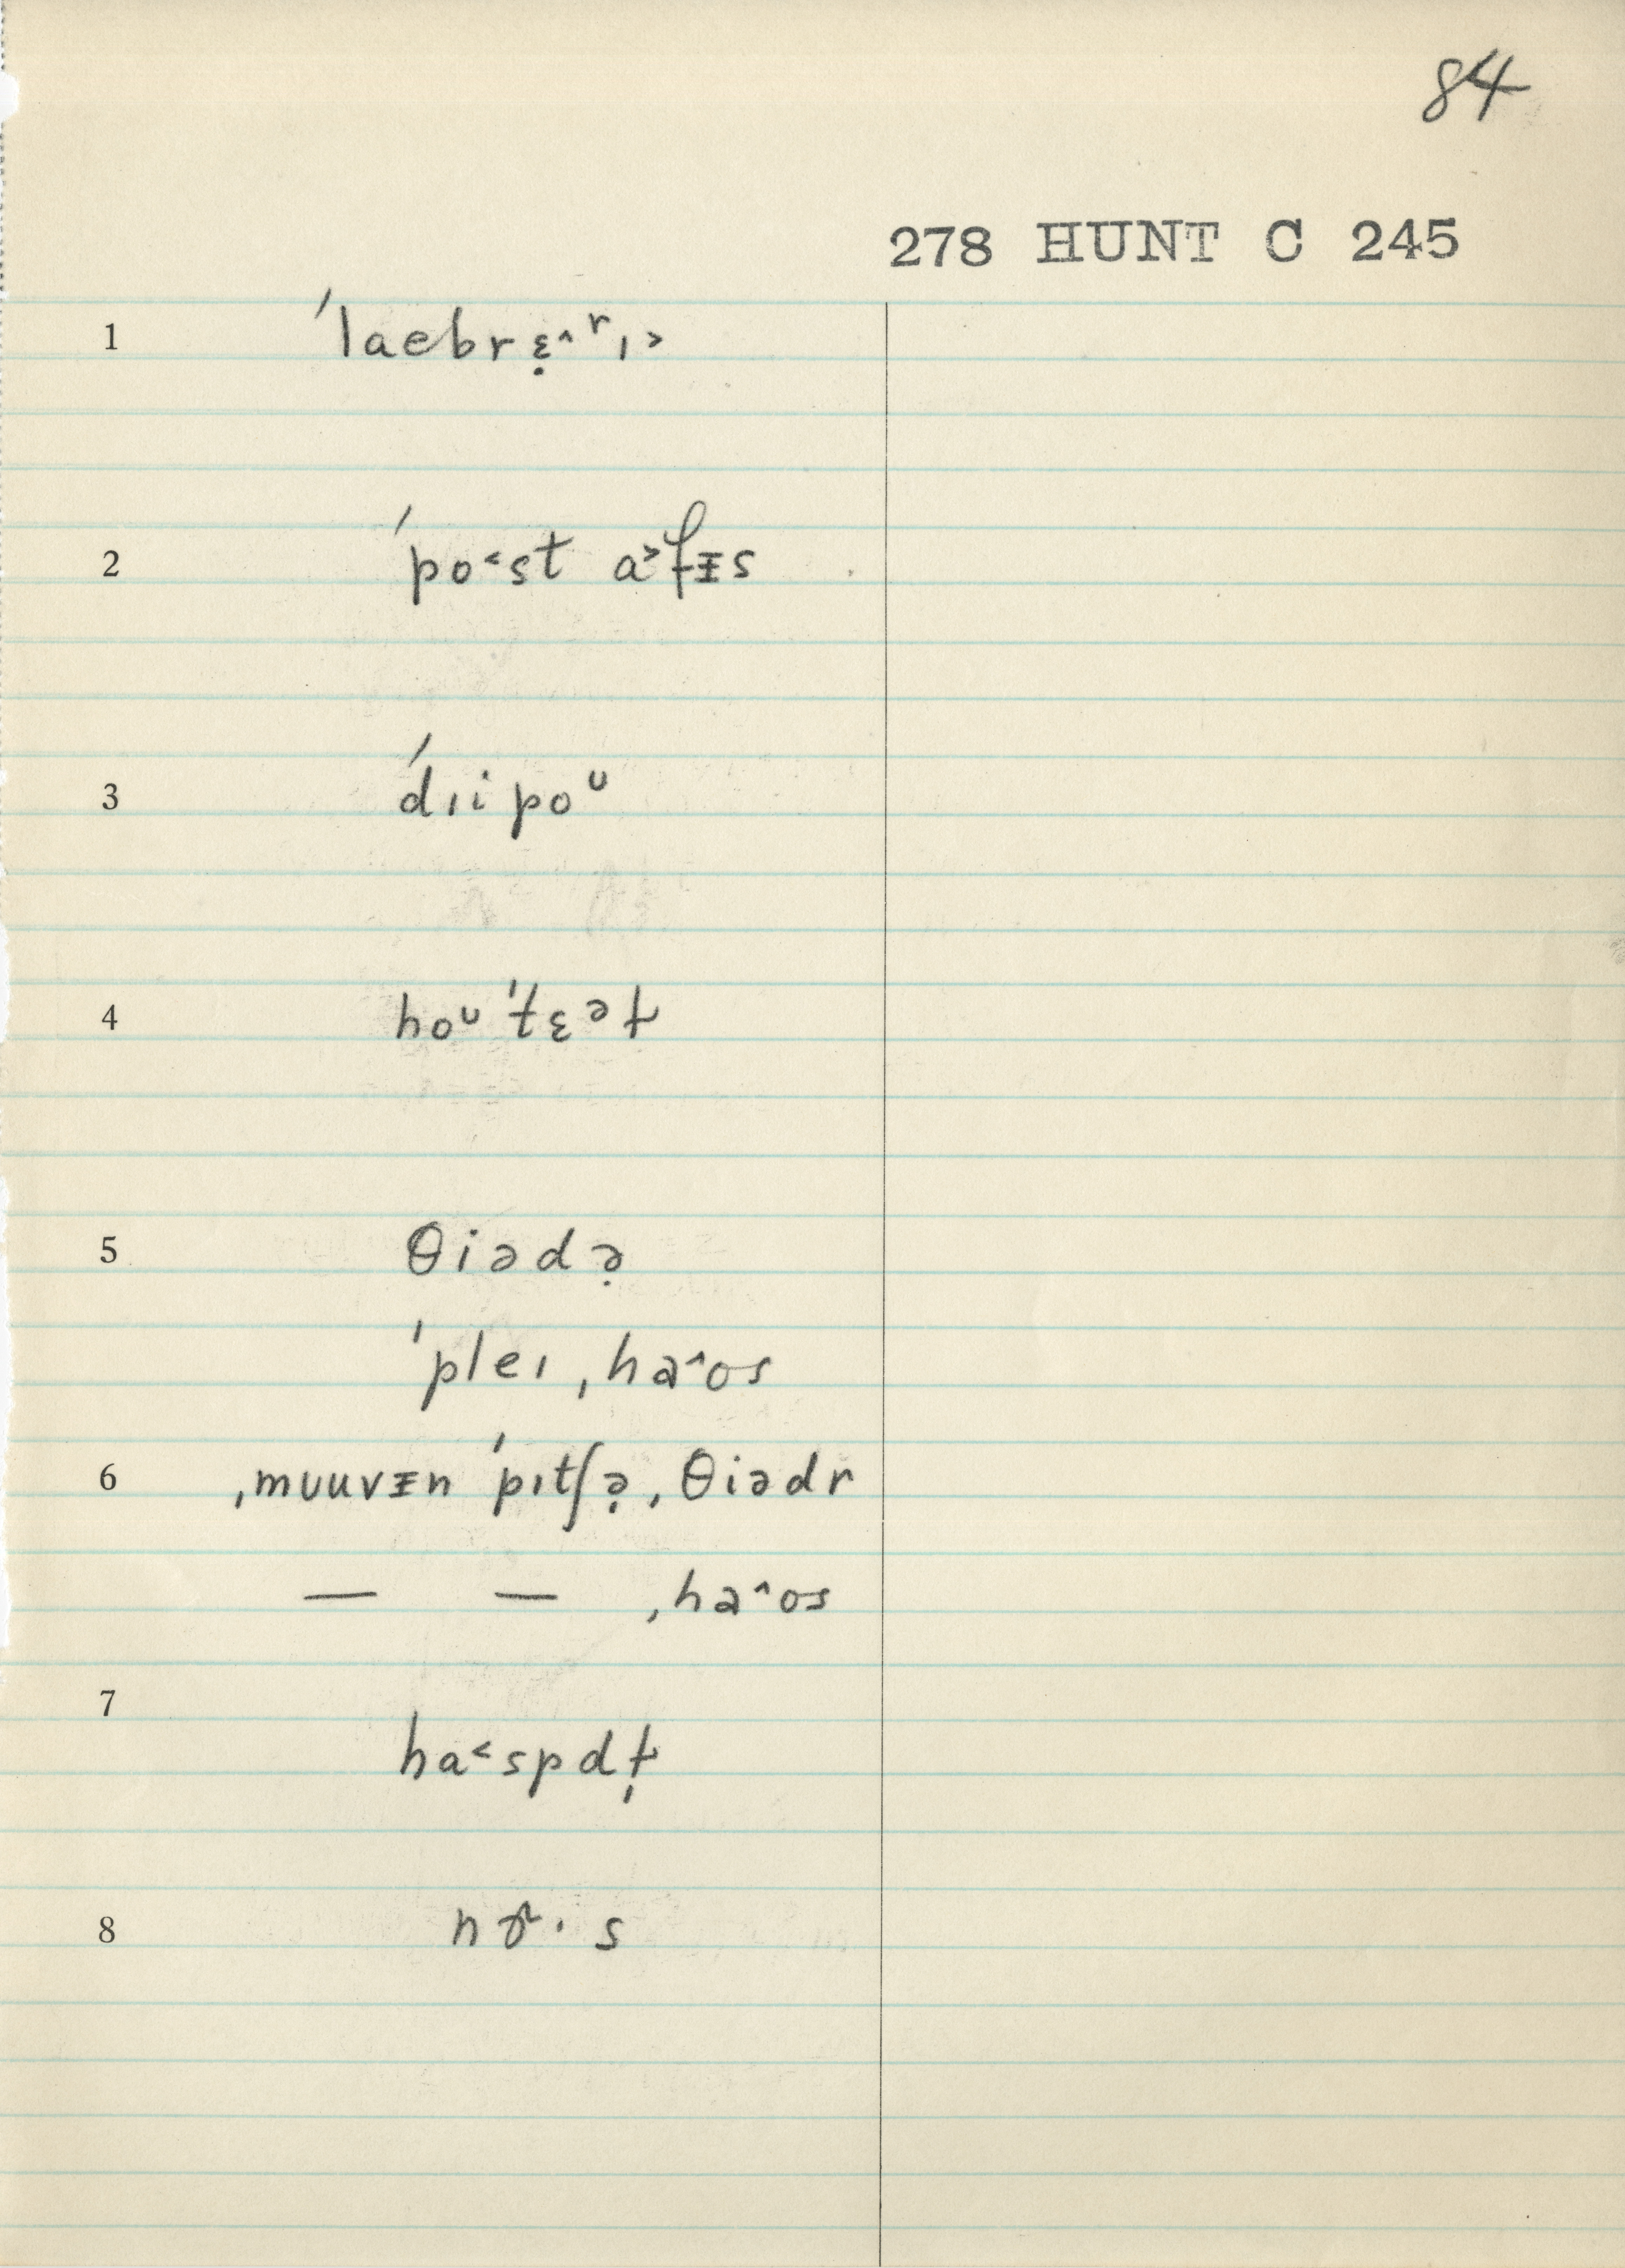 84
278 HUNT C 245
1 ˈlaebrɛ̣˄ʳɪ˃
2 ˈpo˂st a˃fᵻs
3 ˈdɪipoᶷ
4 hoᶷˈt̬ɛᵊɫ
5 θiədə̣
ˈpleɪˌha˄ʊs
6 ˌmʊuvᵻn ˈpɪtʃə̣ˌθiədr
— — ˌha˄ʊs
7 ha˂spdɫ̩
8 nɚ·s